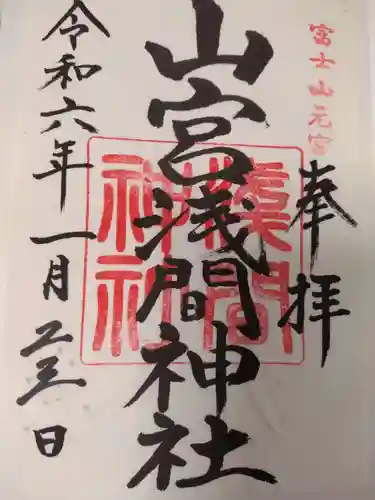 富士山元宮
奉拝
山宮浅間神社
浅間神社
令和六年一月二三日